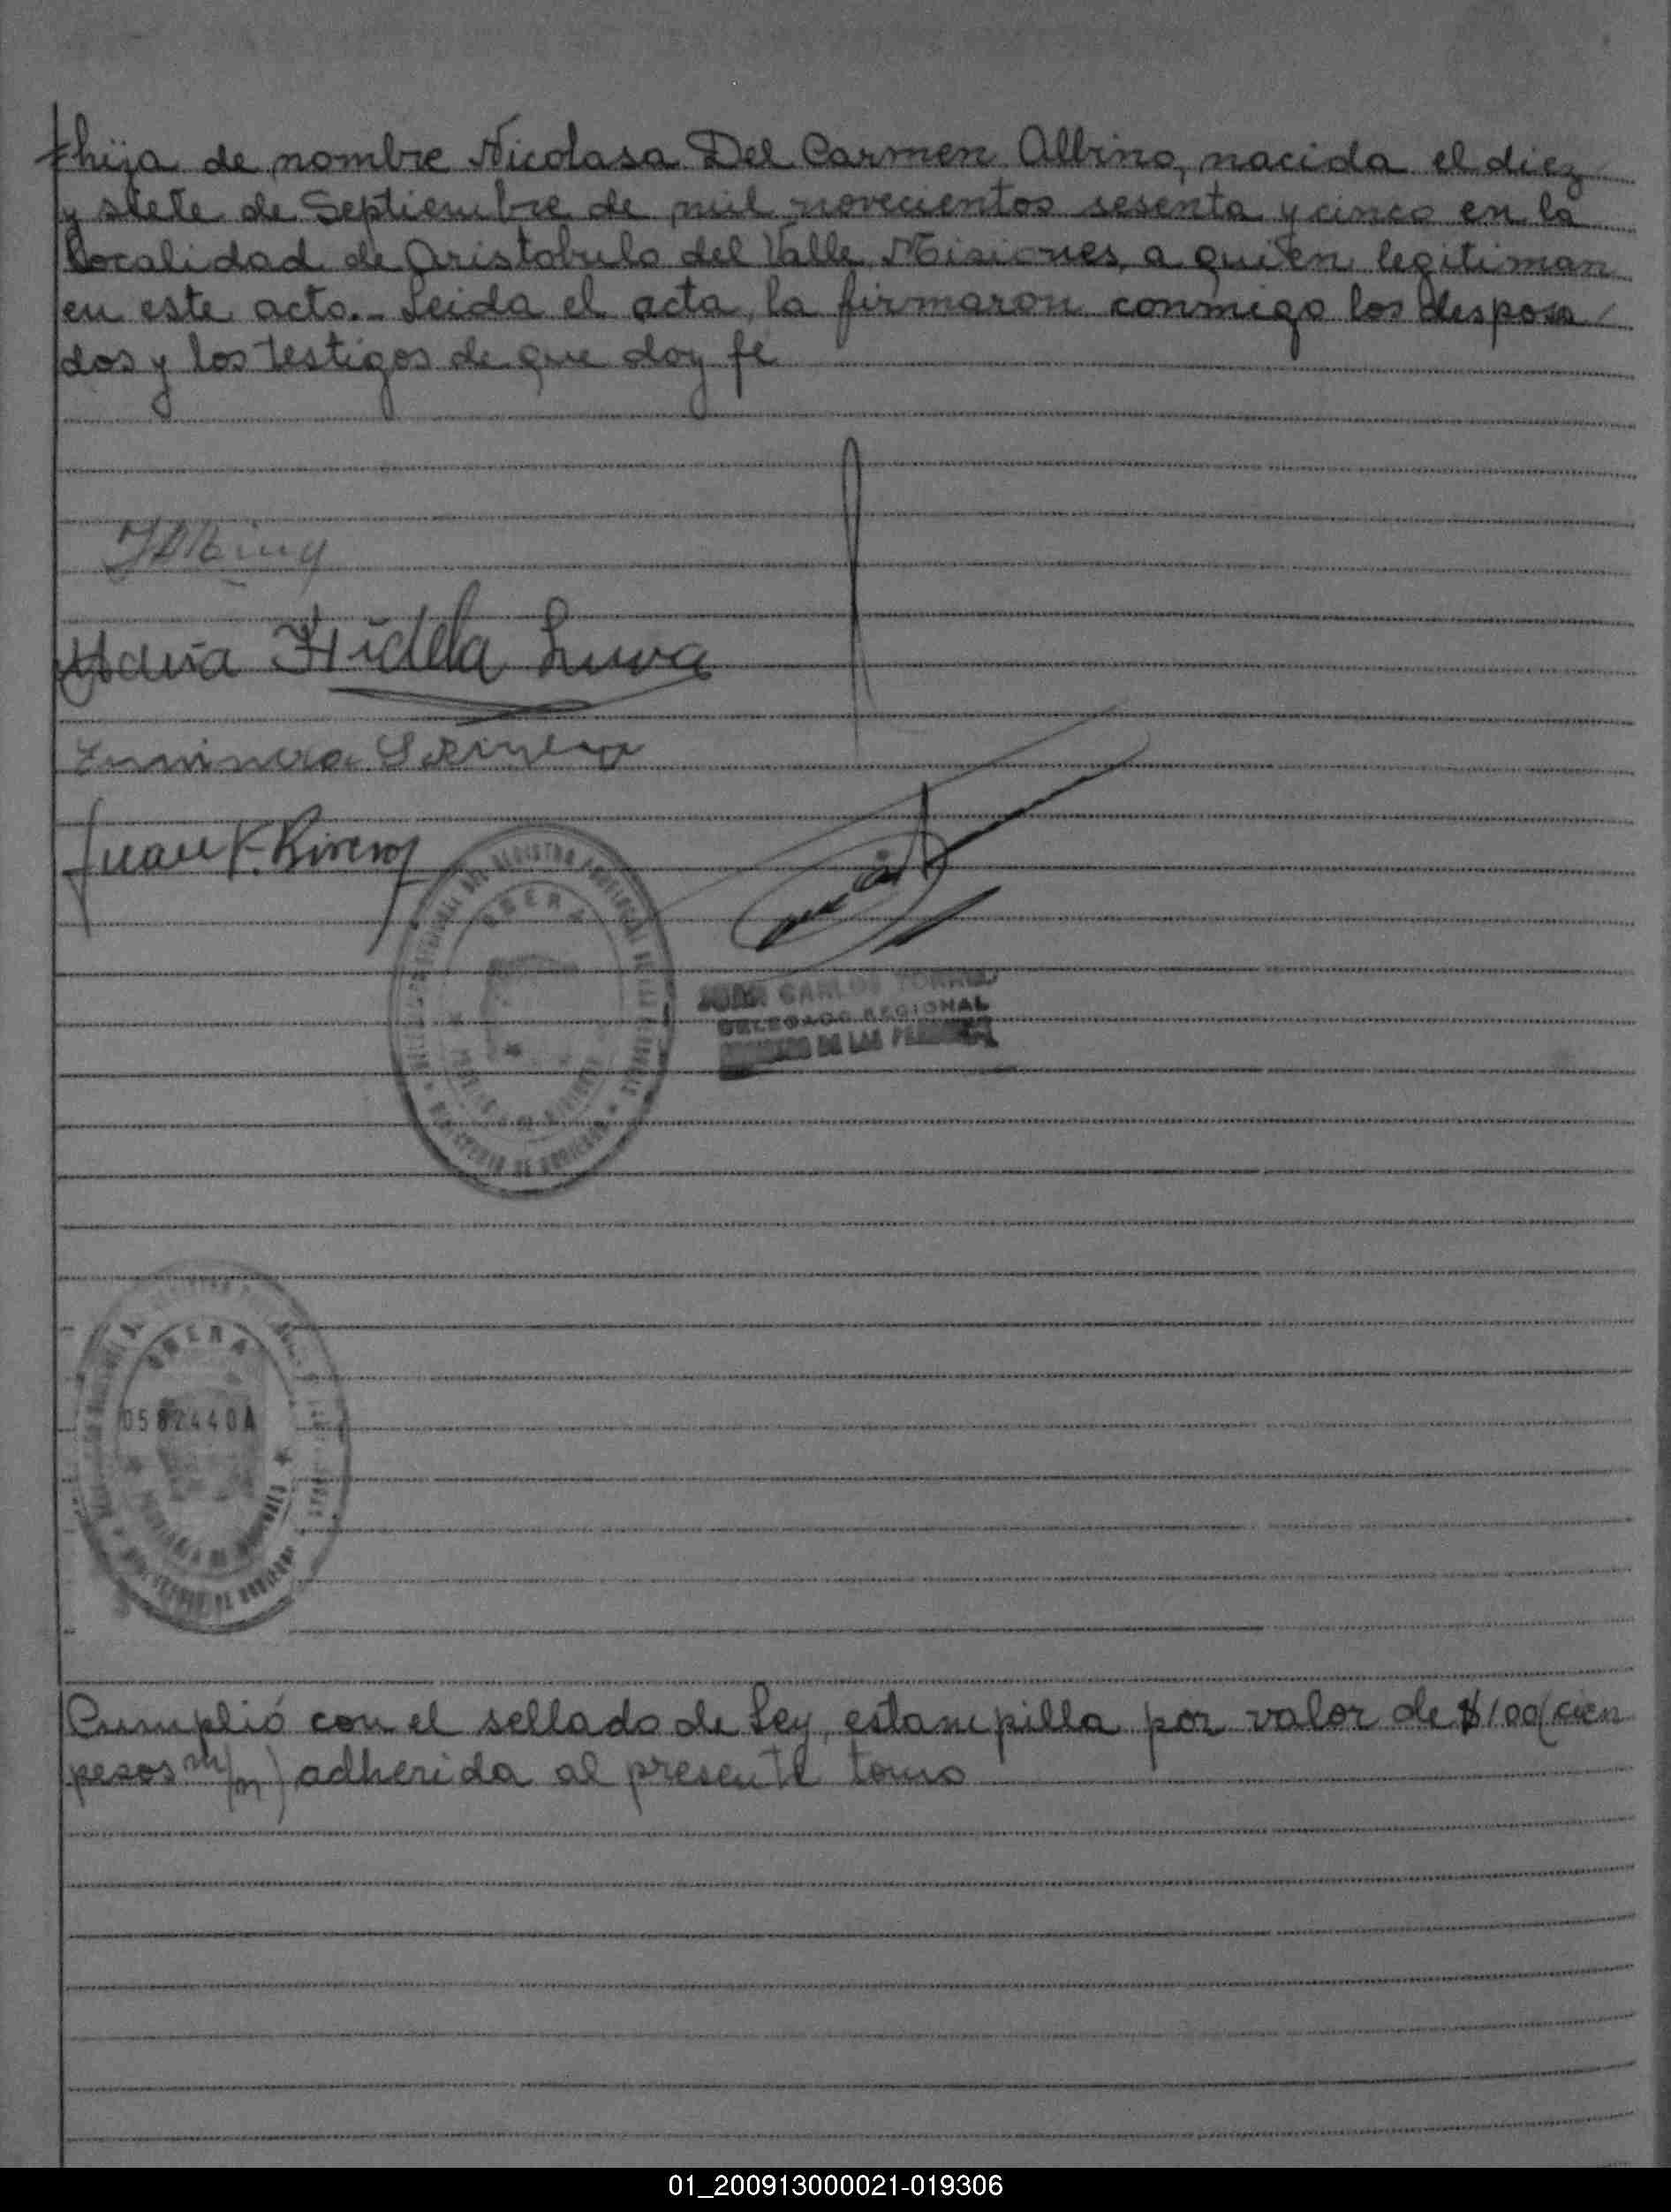 hija de nombre Nicolasa Del Carmen Albino, nacida el diez
y siete de Septiembre de mil novecientos sesenta y cinco en la
localidad de Aristobulo del Valle Misiones, a quien legitiman
en este acto.- Leida el acta, la firmaron conmigo los desposa
dos y los testigos de que doy fe
JAlbino
Maria Fidela Luna
Juan F. Rivero
OBERA
JUAN CARLOS TORRES
DELEGADO REGIONAL
REGISTRO DE LAS PERSONAS
OBERA
0582440A
Cumplió con el sellado de Ley, estampilla por valor de $100(cien
pesos m/n) adherida al presente tomo
01_200913000021-019306